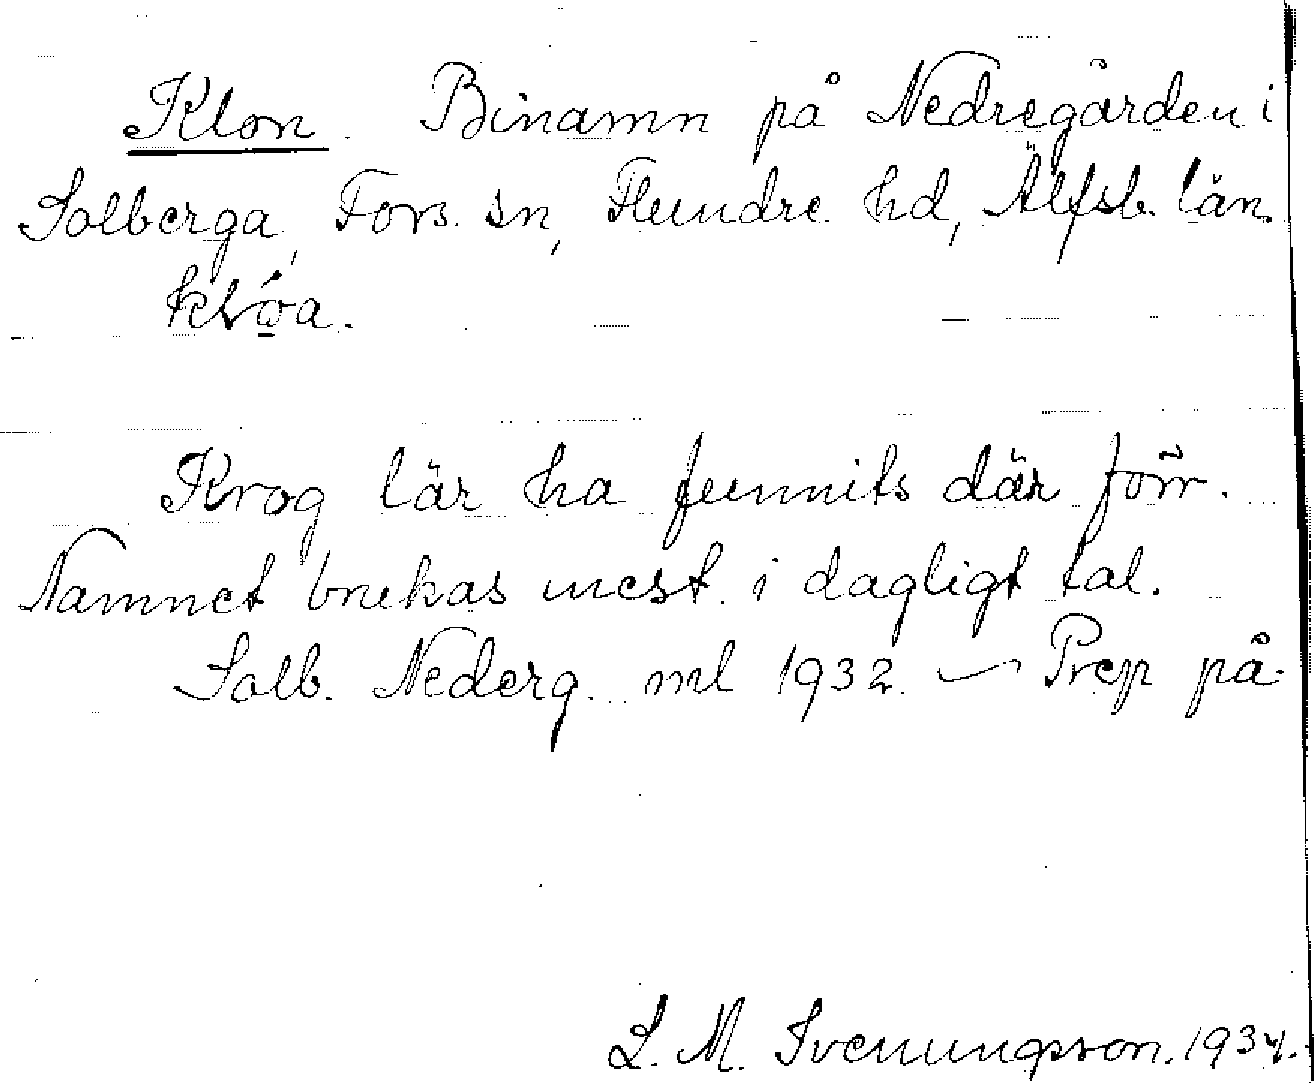 Klon. Binamn på Nedregården i
Solberga, Fors. sn, Flundre hd, Älfsb. län.
Krog lär ha funnits där förr.
Namnet brukas mest i dagligt tal.
Solb. Nederg. ml 1932. – Prep på.
L. M. Svenungsson. 1934.